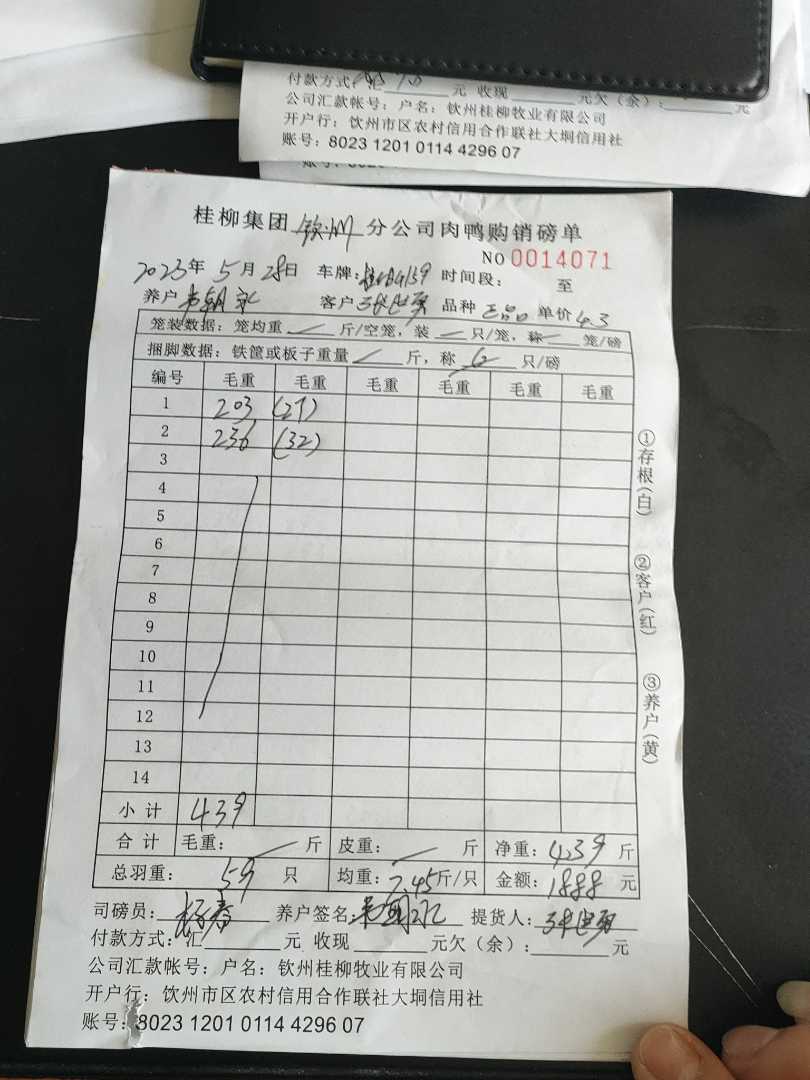 付款方式：汇 元 收现 元欠（余）： 元
公司汇款帐号：户名：钦州桂柳牧业有限公司
开户行：钦州市区农村信用合作联社大垌信用社
账号：8023 1201 0114 4296 07
桂柳集团 钦州 分公司肉鸭购销磅单
NO 0014071
2023年 5月 28日 车牌： 时间段： 至
养户 客户 品种 单价 4.3
笼装数据：笼均重 斤/空笼，装 只/笼，称 笼/磅
捆脚数据：铁筐或板子重量 斤，称 6 只/磅
编号 毛重 毛重 毛重 毛重 毛重 毛重
1 203 (27)
2 236 (32)
3
4
5
6
7
8
9
10
11
12
13
14
小计 439
合计 毛重： 斤 皮重： 斤 净重：439 斤
总羽重： 59 只 均重：7.45斤/只 金额：1888 元
司磅员： 养户签名： 提货人：
付款方式：汇 元 收现 元欠（余）： 元
公司汇款帐号：户名：钦州桂柳牧业有限公司
开户行：钦州市区农村信用合作联社大垌信用社
账号：8023 1201 0114 4296 07
①存根（白）
②客户（红）
③养户（黄）